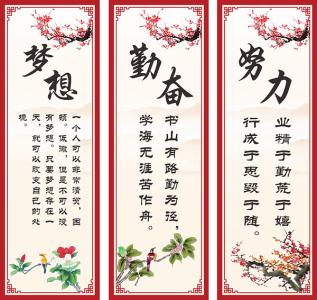 梦想
一个人可以非常清贫，困
顿，低微，但是不可以没
有梦想。只要梦想存在一
天，就可以改变自己的处
境。
勤奋
书山有路勤为径，
学海无涯苦作舟。
努力
业精于勤荒于嬉，
行成于思毁于随。